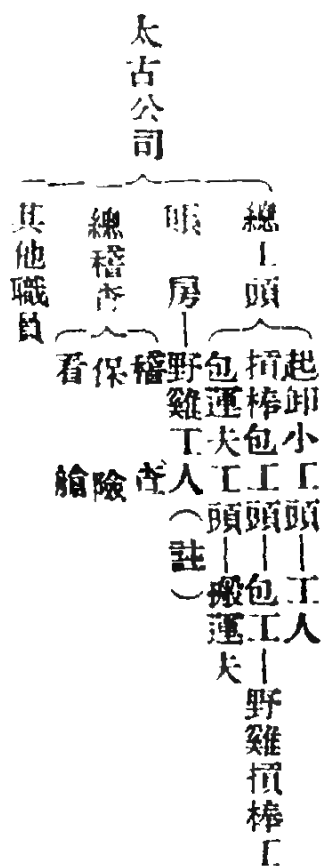 太古公司
總工頭
起卸小工頭—工人
摃棒包工頭—包工—野雞摃棒工
包運夫工頭—搬運夫
帳房—野雞工人(註)
總稽查
稽查
保險
看艙
其他職員